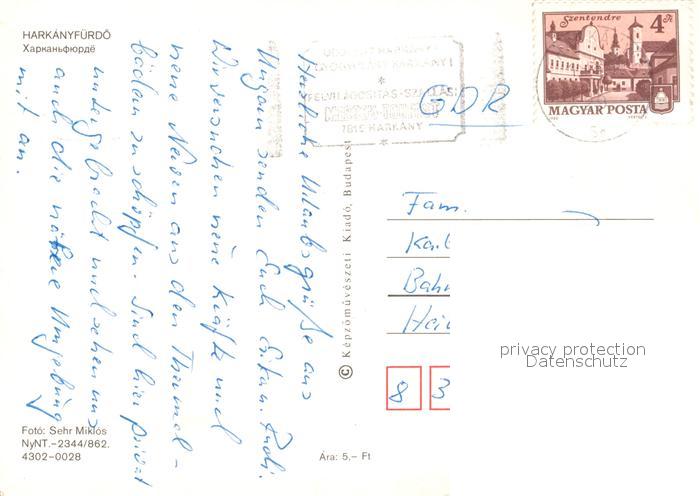 HARKÁNYFÜRDŐ
Харканьфюрдё
Herzliche Urlaubsgrüße aus
Ungarn senden Euch
Wir versuchen neue Kräfte und
neue aus den Thermal-
bädern zu schöpfen. Sind hier privat
untergebracht und sehen uns
auch die nähere Umgebung
mit an.
Fotó: Sehr Miklós
NyNT.–2344/862.
4302-0028
Ára: 5,– Ft
© Képzőművészeti Kiadó, Budapest
FELVILÁGOSÍTÁS-SZÁLLÁS:
7815 HARKÁNY
GDR
Szentendre
4 Ft
MAGYAR POSTA
Fam.
Bah
Hei
8 3
privacy protection
Datenschutz